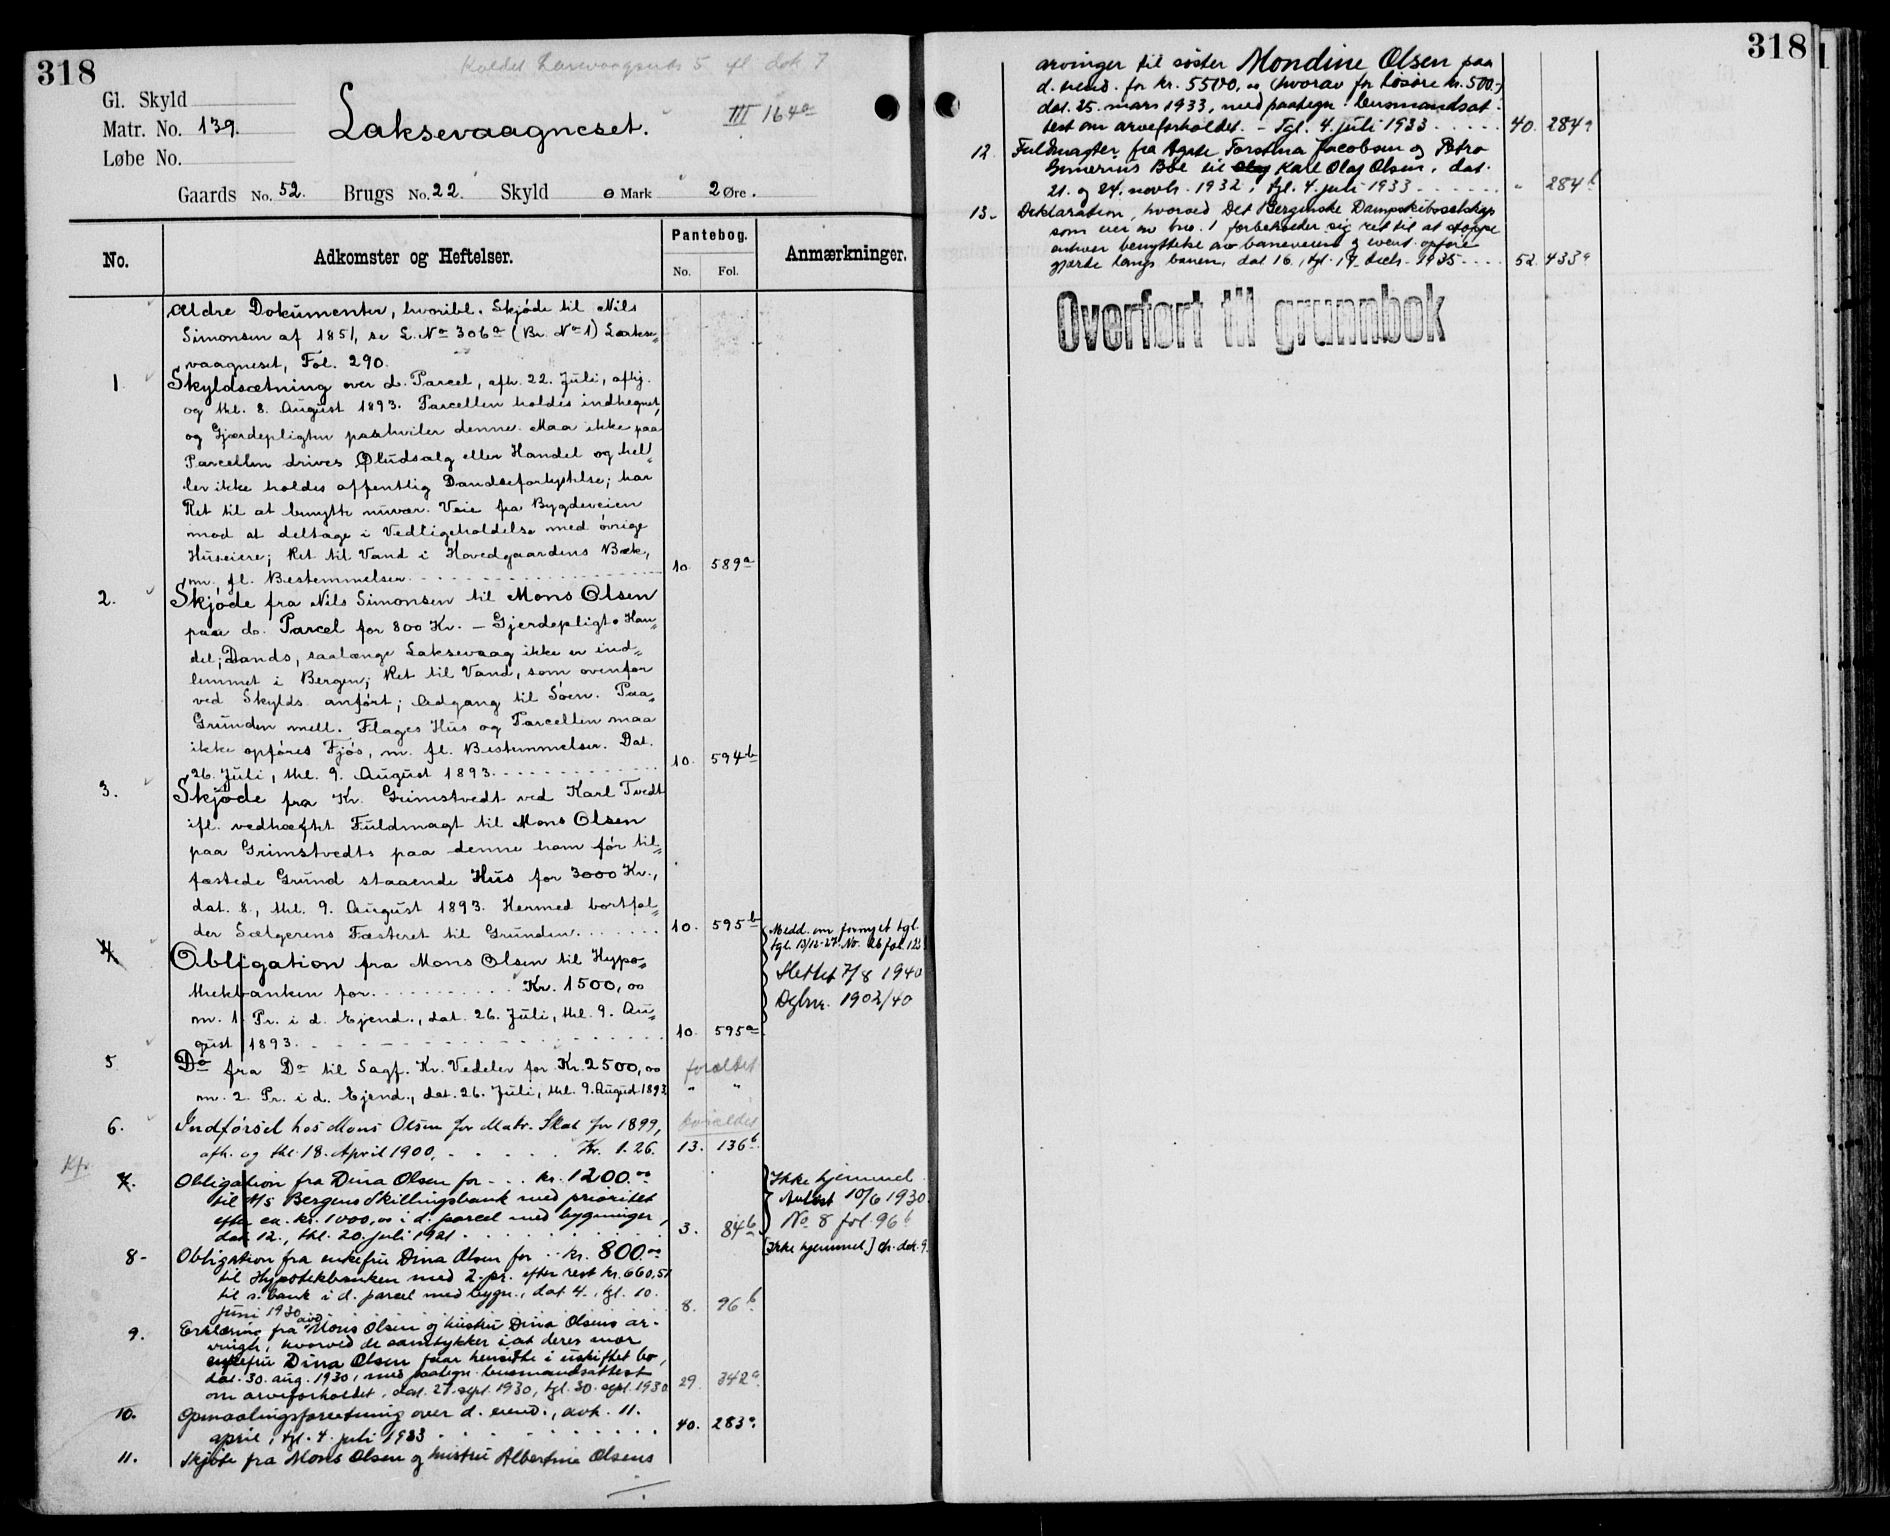 318
Kaldet Larsvaagsnes 5 ifl dok 7
Gl. Skyld
Matr. No. 139.
Laksevaagneset.
III 164a
Løbe No.
Gaards No. 52. Brugs No. 22. Skyld o Mark 2 Øre.
No.
Adkomster og Heftelser.
Pantebog.
No. Fol.
Anmærkninger.
Ældre Dokumenter, hvoribl. Skjøde til Nils
Simonsen af 1851, se L. No 306a (Br. No 1) Lakse-
vaagneset, Fol. 290.
1. Skyldsætning over d. Parcel, afh. 22. Juli, afhj.
og thl. 8. August 1893. Parcellen holdes indhegnet,
og Gjærdepligten paahviler denne. Maa ikke paa
Parcellen drives Øludsalg eller Handel og hel-
ler ikke holdes offentlig Dandseforlystelse; har
Ret til at benytte nuvær. Veie fra Bygdeveien
mod at deltage i Vedligeholdelse med øvrige
Huseiere; Ret til Vand i Hovedgaardens Bæk,
m. fl. Bestemmelser. 10. 589a
2. Skjøde fra Nils Simonsen til Mons Olsen
paa do. Parcel for 800 Kr. – Gjerdepligt. Han-
del; Dands, saalænge Laksevaag ikke er ind-
lemmet i Bergen; Ret til Vand, som ovenfor
ved Skylds. anført; Adgang til Søen. Paa
Grunden mell. Flages Hus og Parcellen maa
ikke opføres Fjøs, m. fl. Bestemmelser. Dat.
26. Juli, thl. 9. August 1893. 10. 594b
3. Skjøde fra Kr. Grimstvedt ved Karl Tvedt
ifl. vedhæftet Fuldmagt til Mons Olsen
paa Grimstvedts paa denne ham før til-
fæstede Grund staaende Hus for 3000 Kr.,
dat. 8., thl. 9. August 1893. Hermed bortfal-
der Sælgerens Fæsteret til Grunden. 10. 595b
4. Obligation fra Mons Olsen til Hypo-
thekbanken for Kr. 1500,00
m. 1. Pr. i d. Ejend., dat. 26. Juli, thl. 9. Au-
gust 1893. 10. 595a
Medd. om fornyet tgl.
tgl. 13/12-27. No. 26 fol. 123
Slettet 7/8 1940
Dgbnr. 1902/40
5 Do fra Do til Sagf. Kr. Vedeler for Kr. 2500,00 forældet
m. 2. Pr. i d. Ejend., dat. 26. Juli, thl. 9. August 1893 " "
6. Indførsel hos Mons Olsen for Matr. Skat for 1899, forældet
afh. og thl. 18. April 1900, Kr. 1.26. 13. 136b
Kfr.
7. Obligation fra Dina Olsen for kr. 1200.00
til A/S Bergens Skillingsbank med prioritet
efter ca. kr. 1000,00 i d. parcel med bygninger,
dat 12., thl. 20. juli 1921 3. 84b
Ikke hjemmel.
Avlæst 10/6 1930.
No 8 fol. 96b
8- Obligation fra enkefru Dina Olsen for kr. 800.00
til Hypotekbanken med 2. pr. efter rest kr. 660,51
til s. bank i d. parcel med bygn., dat 4., tgl. 10.
juni 1930 8. 96b
[Ikke hjemmel] cfr. dok. 9.
9. Erklæring fra avd. Mons Olsen og hustru Dina Olsens ar-
vinger, hvorved de samtykker i at deres mor
enkefru Dina Olsen faar hensitte i uskiftet bo,
dat. 30. aug. 1930, med paategn. lensmandsattest
om arveforholdet, dat. 27. sept. 1930, tgl. 30. sept. 1930 29. 342a
10. Opmaalingsforretning over d. eiend., avh. 11.
april, tgl. 4. juli 1933 40. 283a
11. Skjøte fra Mons Olsen og hustru Albertine Olsens
318
arvinger til søster Mondine Olsen paa
d. eiend. for kr. 5500,00 (hvorav for løsøre kr. 500.-)
dat. 25. mars 1933, med paategn. lensmandsat-
test om arveforholdet. – Tgl. 4. juli 1933 40. 284a
12. Fuldmagter fra Agate Torstina Jacobsen og Petra
Gunerius Bøe til Olaf Karl Olaf Olsen, dat.
21. og 24. novbr. 1932, tgl. 4. juli 1933 " 284b
13. Deklaration, hvorved Det Bergenske Dampskibsselskap
som eier av bno. 1 forbeholder sig ret til at stoppe
enhver benyttelse av baneveien og event. opføre
gjærde langs banen, dat 16., tgl. 17. decb. 1935 52. 433a
Overført til grunnbok